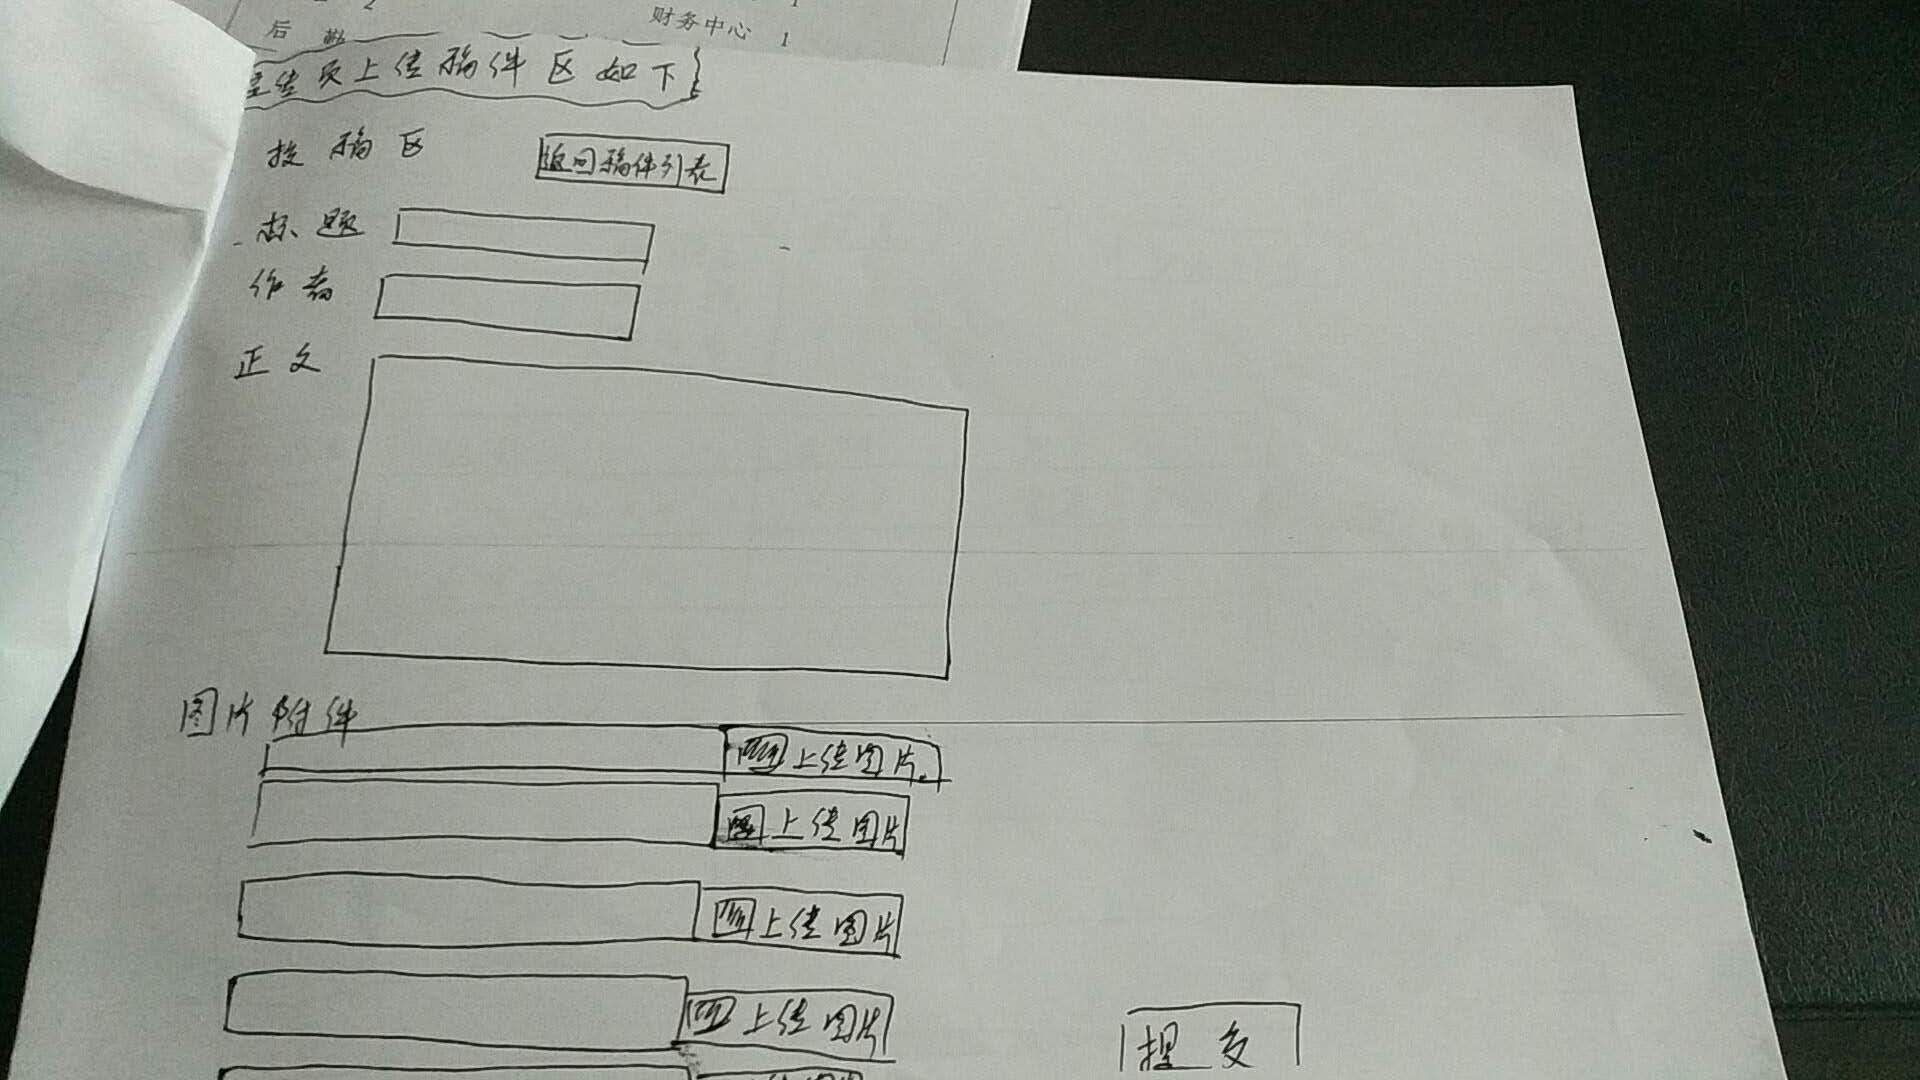 2
1
后 勤
财务中心 1
传页上传稿件区如下
投稿区 返回稿件列表
标题
作者
正文
图片附件
上传图片
上传图片
上传图片
上传图片
上传图片
提交